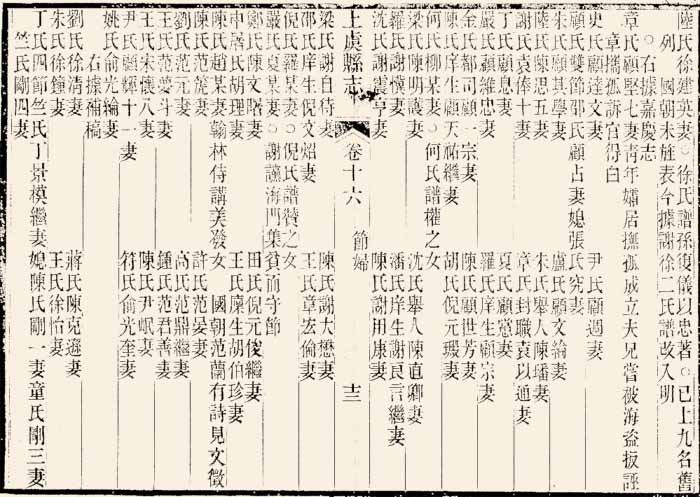 陸氏徐建英妻○徐氏譜孫復儀以忠著○已上九名舊
列 國朝未旌表今據謝徐二氏譜改入明
○右據嘉慶志
章氏顧堅七妻靑年孀居撫孤成立夫兄嘗被海盜扳誣
章攜孤訴官得白
史氏顧達文妻 尹氏顧週妻
顧氏雙節邵氏顧占妻媳張氏究妻
朱氏顧其學妻 盧氏顧文綸妻
陸氏陳思五妻 朱氏舉人陳璠妻
謝氏袁俸十妻 章氏封職袁以通妻
丁氏顧息妻 夏氏顧鸞妻
嚴氏顧維忠妻 羅氏庠生顧宗妻
金氏都司顧一宗妻 陳氏顧世芳妻
陳氏庠生顧天祐繼妻 胡氏倪元瑕妻
何氏柳某妻○何氏譜權之女
梁氏陳明護妻 沈氏舉人陳直卿妻
羅氏謝慎妻 潘氏庠生謝良言繼妻
沈氏謝震亨妻 陳氏謝用康妻
上虞縣志 卷十六 節婦 十三
梁氏謝自待妻 陳氏謝大懋妻
邵氏庠生倪文炤妻 王氏章宏倫妻
倪氏羅某妻○倪氏譜贊之女
嚴氏夏某妻○謝讜海門集貧而守節
鄭氏陳文曙妻 田氏倪元俊繼妻
申屠氏胡理妻 王氏廩生胡伯珍妻
陳氏趙某妻翰林侍講美發女 國朝范蘭有詩見文徵
陳氏范箎妻 許氏范晏妻
劉氏范元妻 高氏范鼎繼妻
王氏范夢斗妻 鍾氏范君善妻
王氏朱懷八妻 陳氏尹岷妻
尹氏顧輝十一妻 符氏俞光奎妻
姚氏俞光綸妻
右據補稿
劉氏徐清妻 蔣氏陳克遜妻
朱氏徐鐘妻 王氏徐怡妻
丁氏四節竺氏丁景模繼妻媳陳氏剛一妻童氏剛三妻
竺氏剛四妻